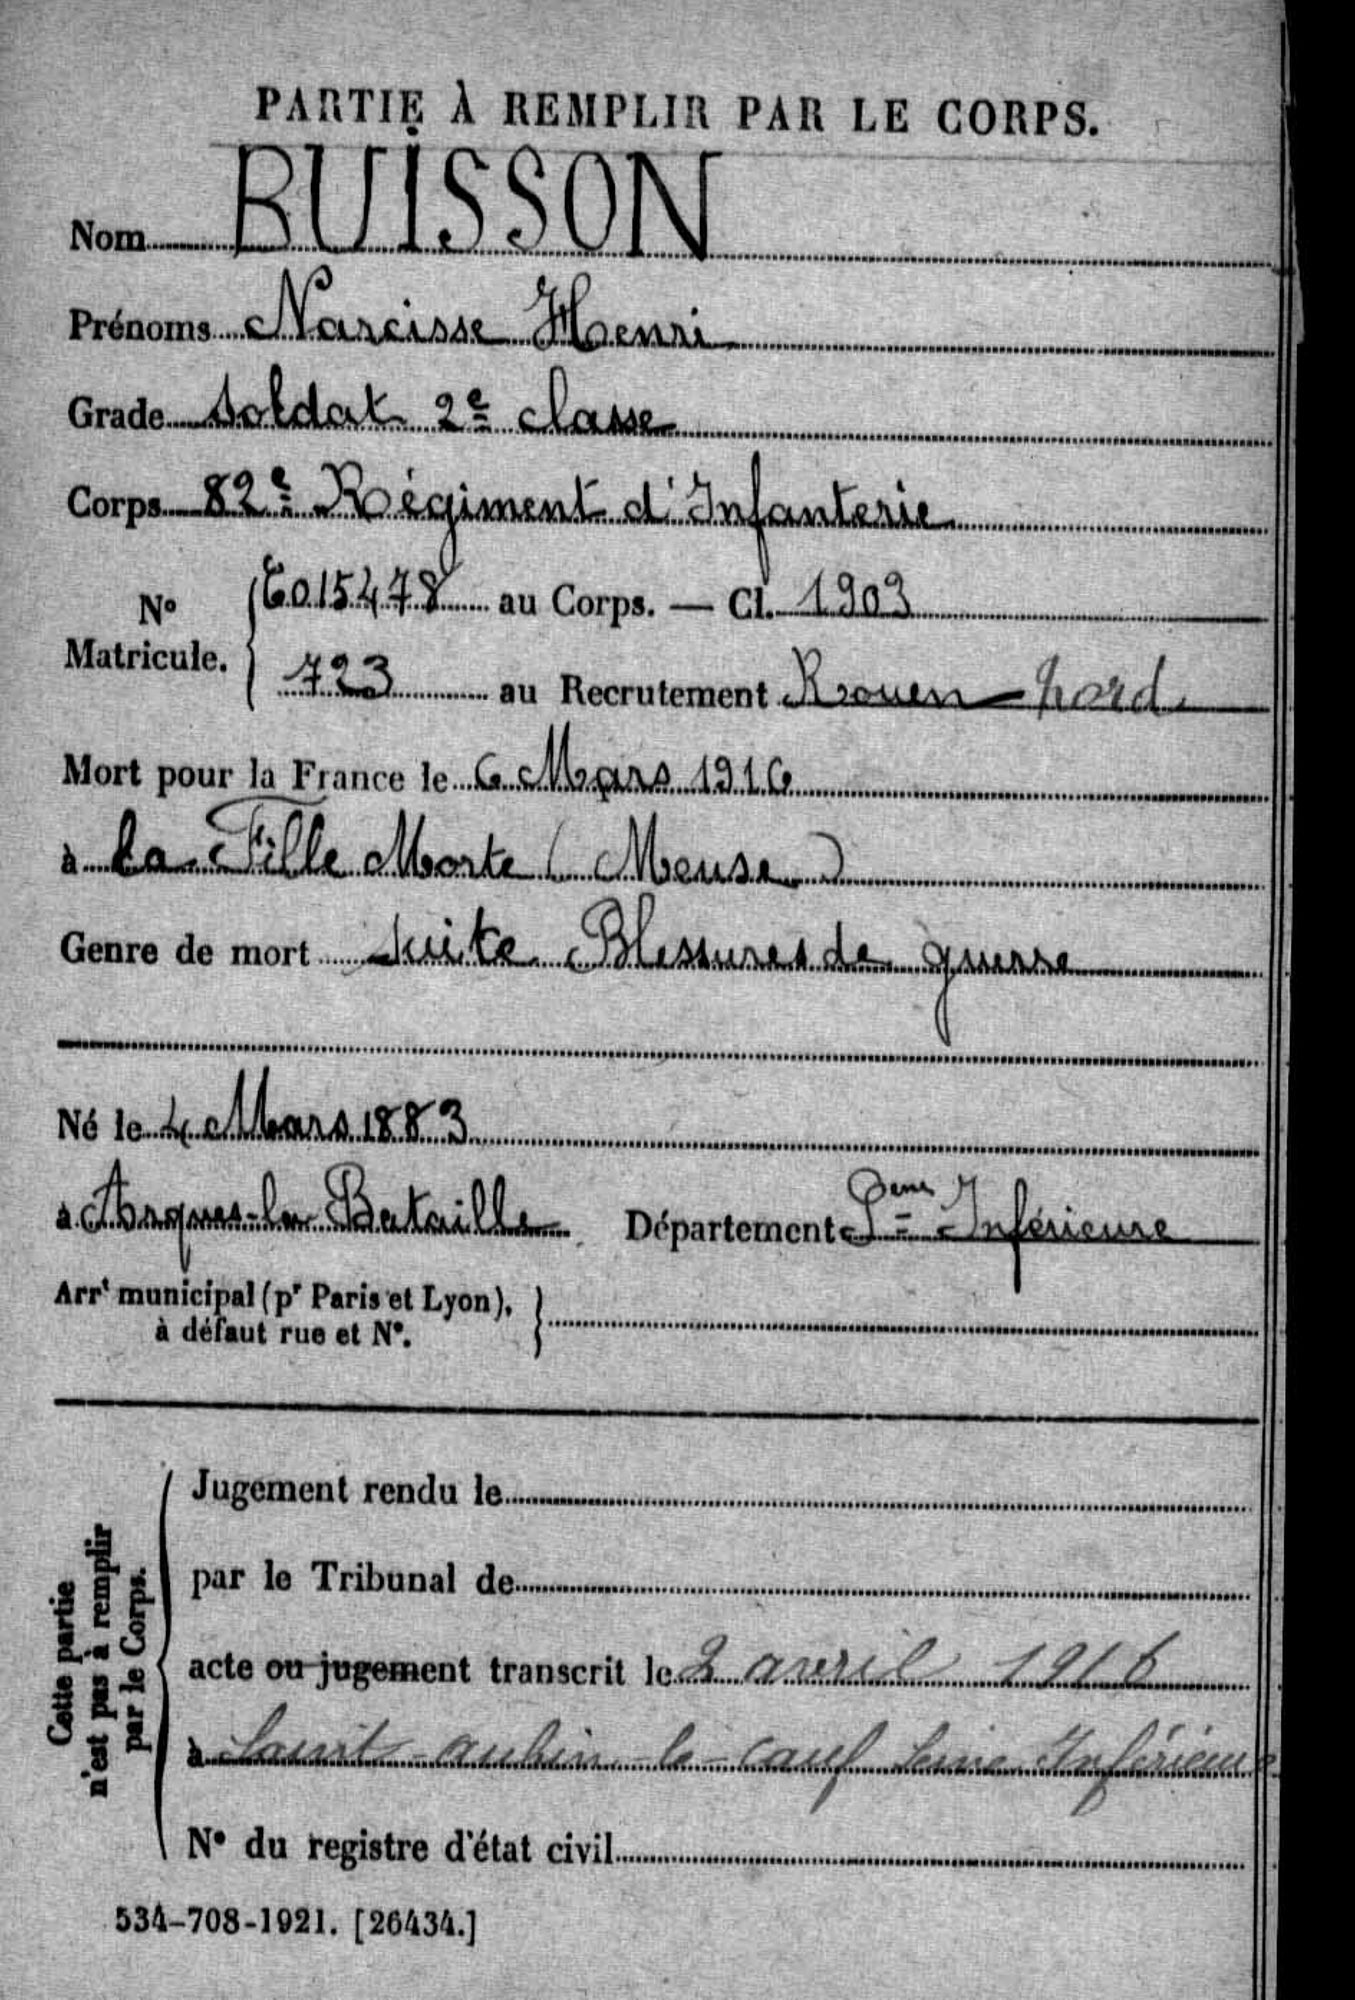 PARTIE À REMPLIR PAR LE CORPS.
Nom BUISSON
Prénoms Narcisse Henri
Grade Soldat 2e classe
Corps 82e Régiment d'Infanterie
No Matricule. { 6015478 au Corps. — Cl. 1903
723 au Recrutement Rouen-Nord
Mort pour la France le 6 Mars 1916
à La Fille Morte (Meuse)
Genre de mort Suite Blessures de guerre
Né le 4 Mars 1883
à Arques-la Bataille Département Seine Sne Inférieure
Arrt municipal (pr Paris et Lyon), à défaut rue et No. }
Cette partie n'est pas à remplir par le Corps.
Jugement rendu le
par le Tribunal de
acte ou jugement transcrit le 2 avril 1916
à Saint-aubin-le-cauf Seine Inférieure
No du registre d'état civil
534-708-1921. [26434.]